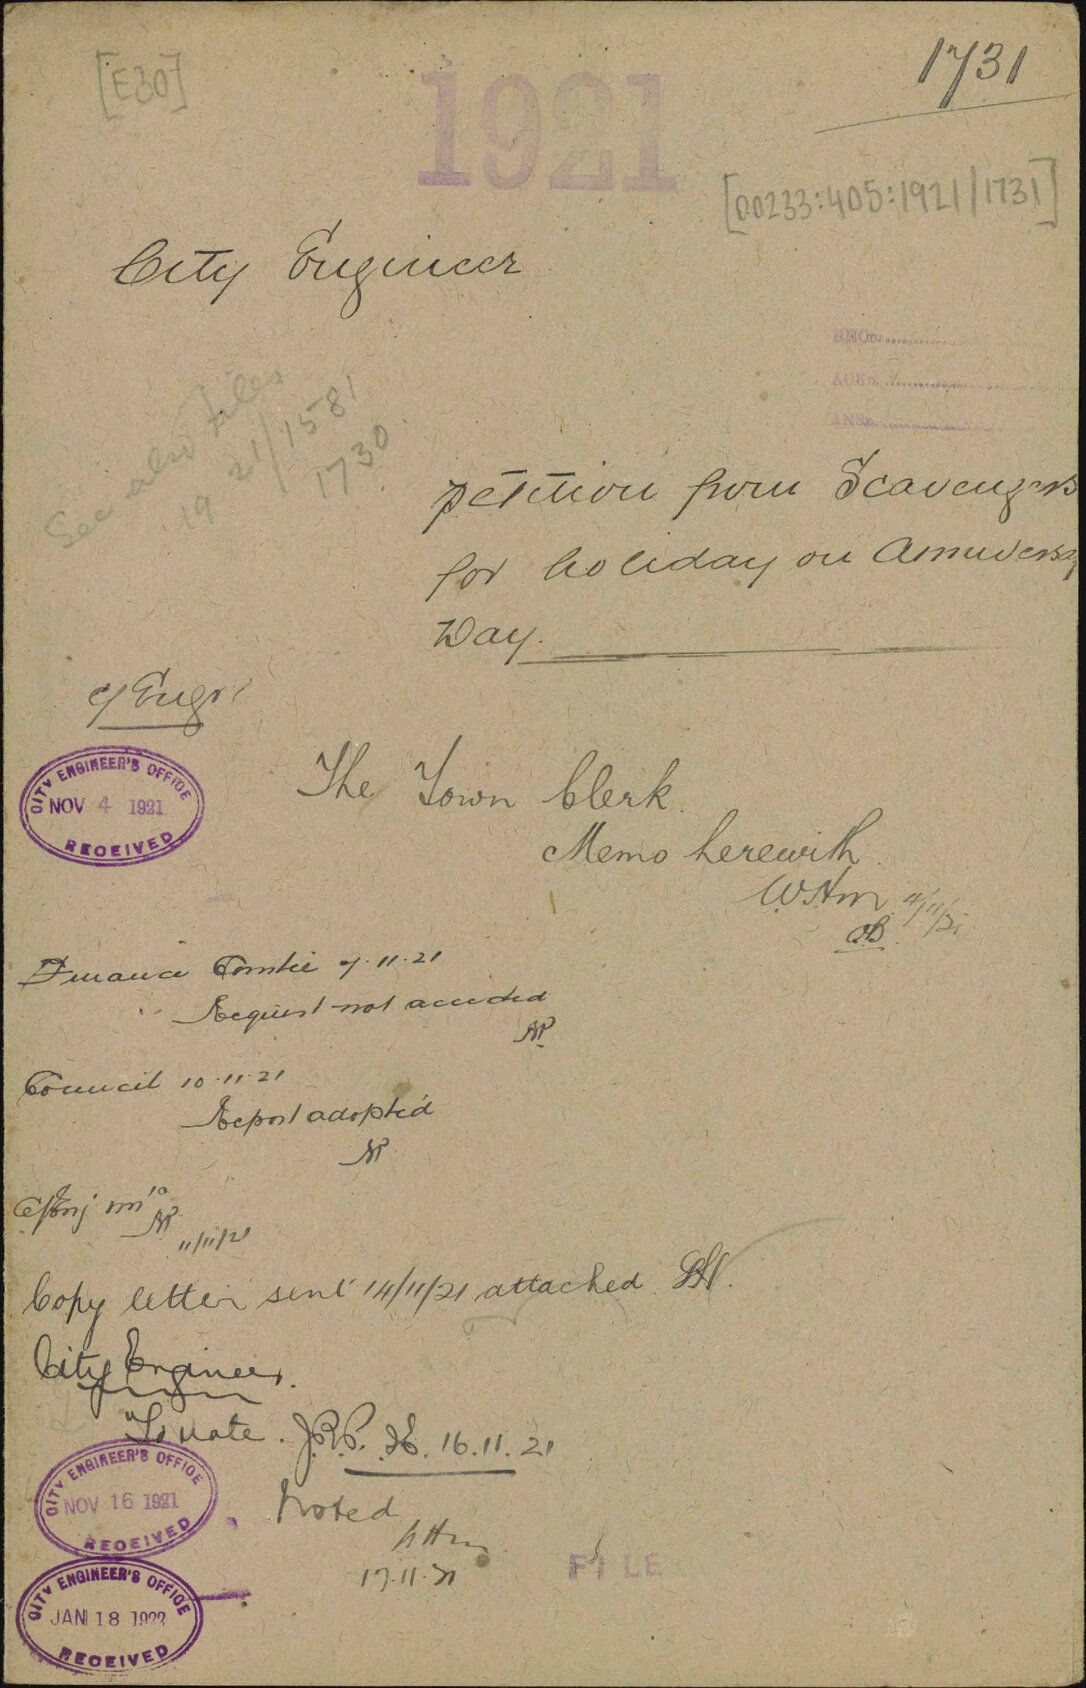 [E30]
1731
1921
[00233:405:1921/1731]
City Engineer
See also files
19 21/1581
1730
petition from Scavengers
for holiday on Anniversary
Day.
C/Engr
CITY ENGINEER'S OFFICE
NOV 4 1921
RECEIVED
The Town Clerk.
Memo herewith.
4/11/21
Finance Comtee 7.11.21
Request not acceded
Council 10.11.21
Report adopted
11/11/21
Copy letter sent 14/11/21 attached
City Engineer.
To note. 16.11.21
CITY ENGINEER'S OFFICE
NOV 16 1921
RECEIVED
Noted
17.11.21
FILE
CITY ENGINEER'S OFFICE
JAN 18 1922
RECEIVED